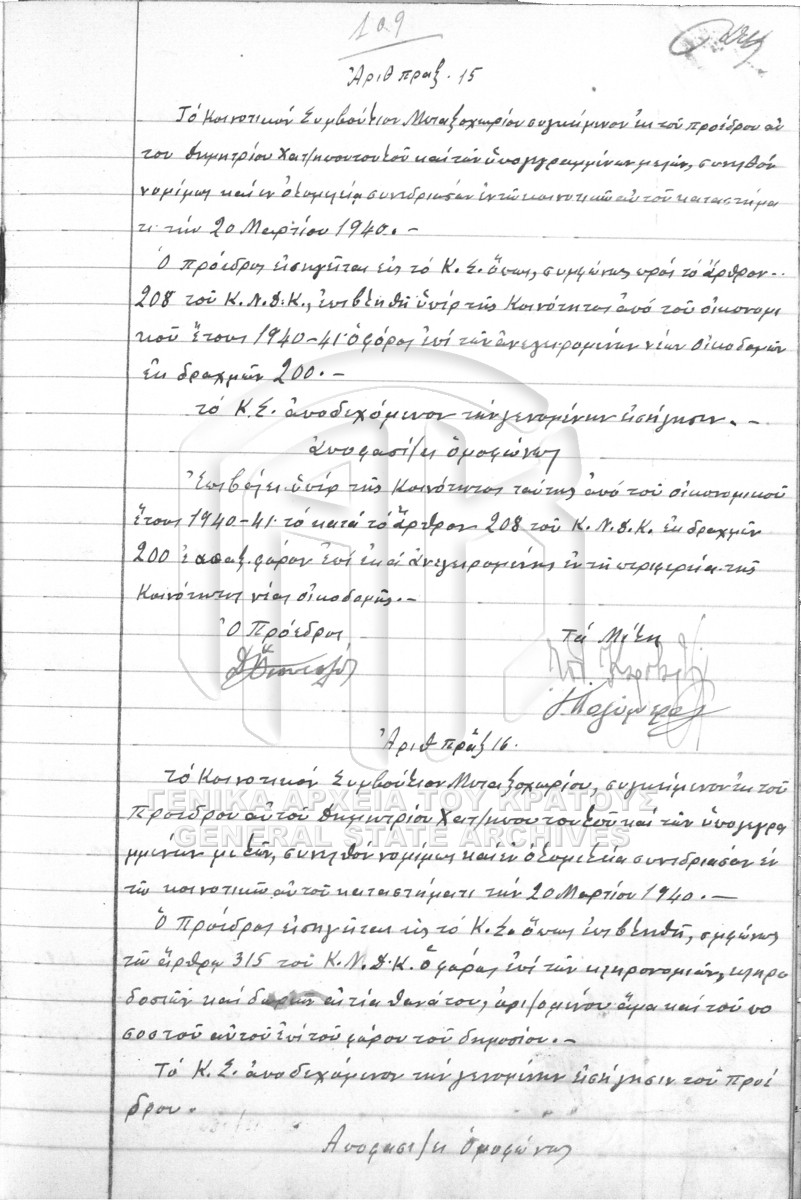 109
Ἀριθ πραξ. 15
Τό Κοινοτικόν Συμβούλιον Μεταξοχωρίου συγκείμενον ἐκ τοῦ προέδρου αὐ
του Δημητρίου Χατζηπουτουτοῦ καί τῶν ὑπογεγραμμένων μελῶν, συνελθόν
νομίμως καί ἐν ὁλομελεία συνεδριασάν ἐν τῶ κοινοτικῶ αὐτοῦ καταστήμα
τι τήν 20 Μαρτίου 1940. -
Ὁ πρόεδρος εἰσηγεῖται εἰς τό Κ.Σ. ὅπως, συμφώνως πρός τό ἄρθρον
208 τοῦ Κ.Ν.Δ.Κ., ἐπιβληθῆ ὑπέρ τῆς Κοινότητος ἀπό τοῦ οἰκονομι
κοῦ ἔτους 1940-41 ὁ φόρος ἐπί τῶν ἀνεγειρομένων νέων οἰκοδομῶν
ἐκ δραχμῶν 200. -
τό Κ.Σ. ἀποδεχόμενον τήν γενομένην εἰσήγησιν. -
Ἀποφασίζει ὁμοφώνως
Ἐπιβάλει ὑπέρ τῆς Κοινότητος ταύτης ἀπό τοῦ οἰκονομικοῦ
ἔτους 1940-41 τό κατά τό ἄρθρον 208 τοῦ Κ.Ν.Δ.Κ. ἐκ δραχμῶν
200 ἐφάπαξ φόρον ἐπί ἑκά ἀνεγειρομένης ἐν τῆ περιφερεία τῆς
Κοινότητος νέας οἰκοδομῆς. -
Ὁ Πρόεδρος Τά Μέλη
Ἀριθ πράξ 16.
τό Κοινοτικόν Συμβούλιον Μεταξοχωρίου, συγκείμενον ἐκ τοῦ
Προέδρου αὐτοῦ Δημητρίου Χατζηπουτουτοῦ καί τῶν ὑπογεγρα
μμένων μελῶν, συνελθόν νομίμως καί ἐν ὁλομελεία συνεδριασάν ἐν
τῶ κοινοτικῶ αὐτοῦ καταστήματι τήν 20 Μαρτίου 1940. -
Ὁ Πρόεδρος εἰσηγεῖται εἰς τό Κ.Σ. ὅπως ἐπιβληθῆ, συμφώνως
τῶ ἄρθρω 315 τοῦ Κ.Ν.Δ.Κ. ὁ φόρος ἐπί τῶν κληρονομιῶν, κληρο
δοσιῶν καί δωρεῶν αἰτία θανάτου, ὁριζομένου ἅμα καί τοῦ πο
σοστοῦ αὐτοῦ ἐπί τοῦ φόρου τοῦ δημοσίου. -
Τό Κ.Σ. ἀποδεχόμενον τήν γενομένην εἰσήγησιν τοῦ προέ
δρου.
Ἀποφασίζει ὁμοφώνως
ΓΕΝΙΚΑ ΑΡΧΕΙΑ ΤΟΥ ΚΡΑΤΟΥΣ
GENERAL STATE ARCHIVES